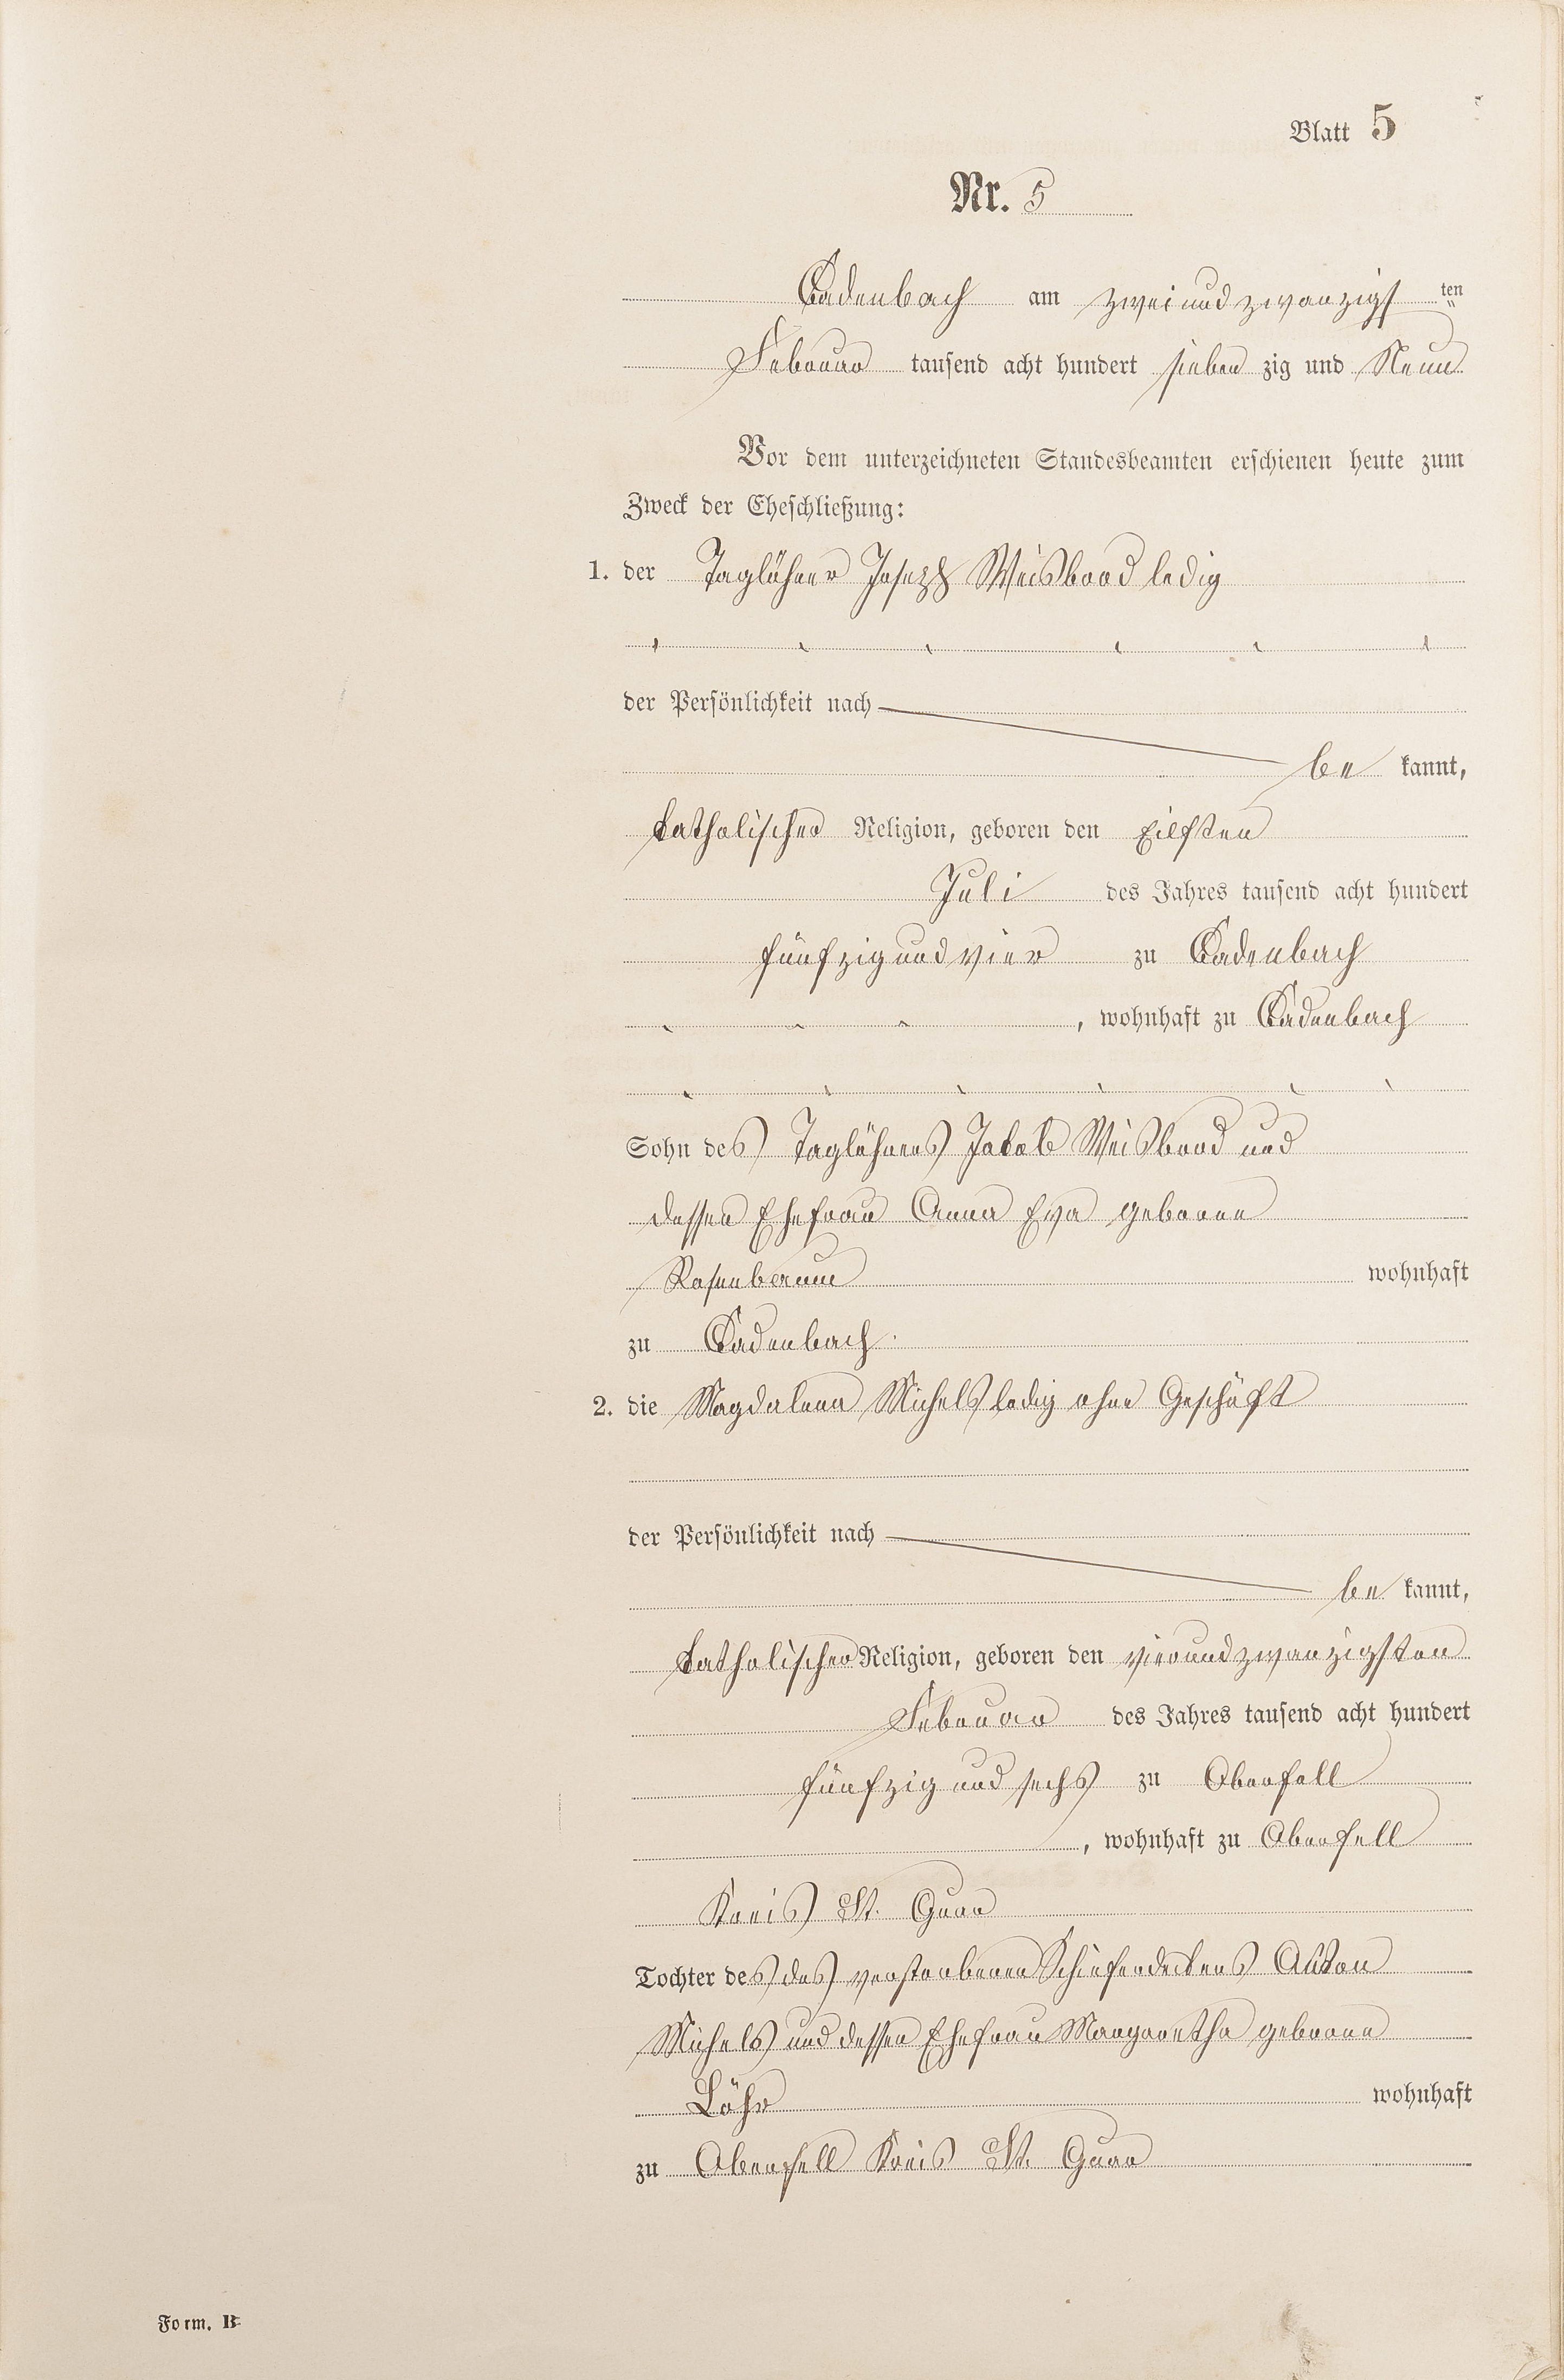 Blatt 5
Nr. 5
Cadenbach am zweiundzwanzigs ten
Februar tausend acht hundert sieben zig und Neun
Vor dem unterzeichneten Standesbeamten erschienen heute zum
Zweck der Eheschließung:
1. der Taglöhner Joseph Weisbrod ledig
der Persönlichkeit nach
be kannt,
katholischer Religion, geboren den Eilften
Juli des Jahres tausend acht hundert
fünfzig und vier zu Cadenbach
, wohnhaft zu Cadenbach
Sohn des Taglöhners Jakob Weisbrod und
dessen Ehefrau Anna Eva geborne
Rosenbaum wohnhaft
zu Cadenbach.
2. die Magdalena Michels ledig ohne Geschäft
der Persönlichkeit nach
be kannt,
katholischer Religion, geboren den vierundzwanzigsten
Februar des Jahres tausend acht hundert
fünfzig und sechs zu Oberfell
, wohnhaft zu Oberfell
Kreis St. Goar
Tochter des des verstorbenen Schieferdeckers Anton
Michels und dessen Ehefrau Margaretha geborne
Löhr wohnhaft
zu Oberfell Kreis St. Goar
Form. B